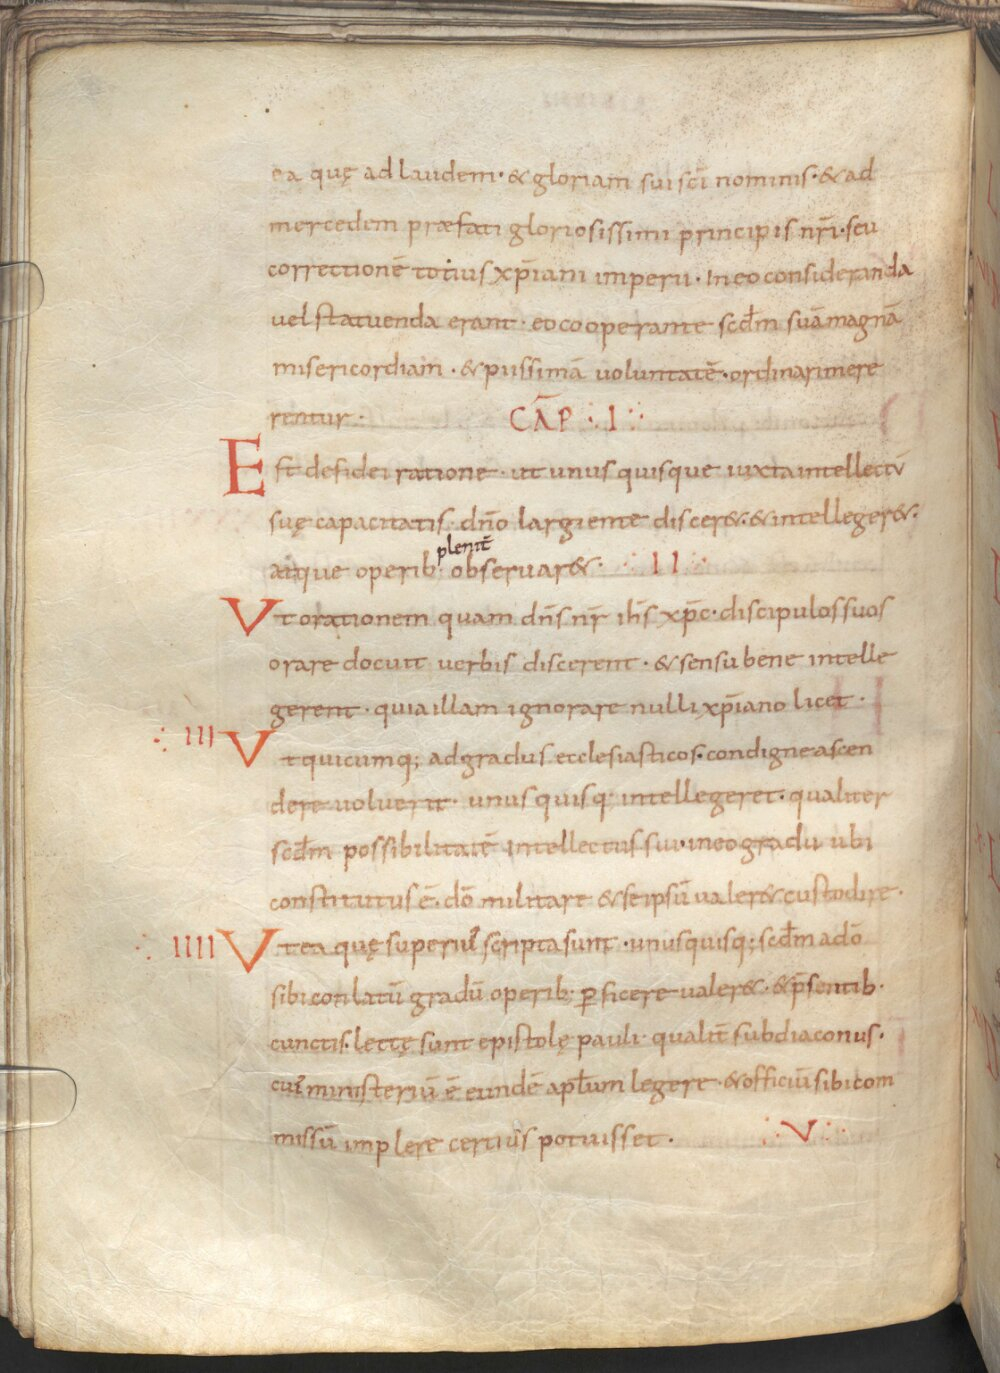 ea quę ad laudem· & gloriam sui scī nominis·& ad
mercedem præfati gloriosissimi principis nr̄i·seu
correctionē totius xp̄iani imperii· In eo consideranda
uel statuenda erant· eo cooperante scd̄m suā magnā
misericordiam·& piissimā uoluntatē·ordinari mere
rentur· CĀP ∴ I ∴
Est de fidei ratione· ut unus quisque iuxta intellectū
suę capacitatis dn̄o largiente discer&·& intelleger&·
plenit̄
atque operib; obseruar&· ∴ II ∴
Vt orationem quam dn̄s nr̄ ih̄s xp̄c·discipulos suos
orare docuit uerbis discerent·& sensu bene intelle
gerent·quia illam ignorare nulli xp̄iano licet·
∴ III Vt quicumq; ad gradus ecclesiasticos·condigne ascen
dere uoluerit· unus quisq; intellegeret·qualiter
scd̄m possibilitatē intellectus sui·in eo gradu ubi
constitutus ē·dō militare & se ipsū ualer& custodire·
∴ IIII Vt ea quę superiu' scripta sunt·unusquisq; scd̄m a dō
sibi conlatū gradū operib; ꝑficere ualer&·& p̄sentib·
cunctis·lectę sunt epistolę pauli·qualit̄ subdiaconus·
cui' ministeriū ē eundē apl̄um legere·& officiū sibi com
missū implere certius potuisset· ∴ V ∴